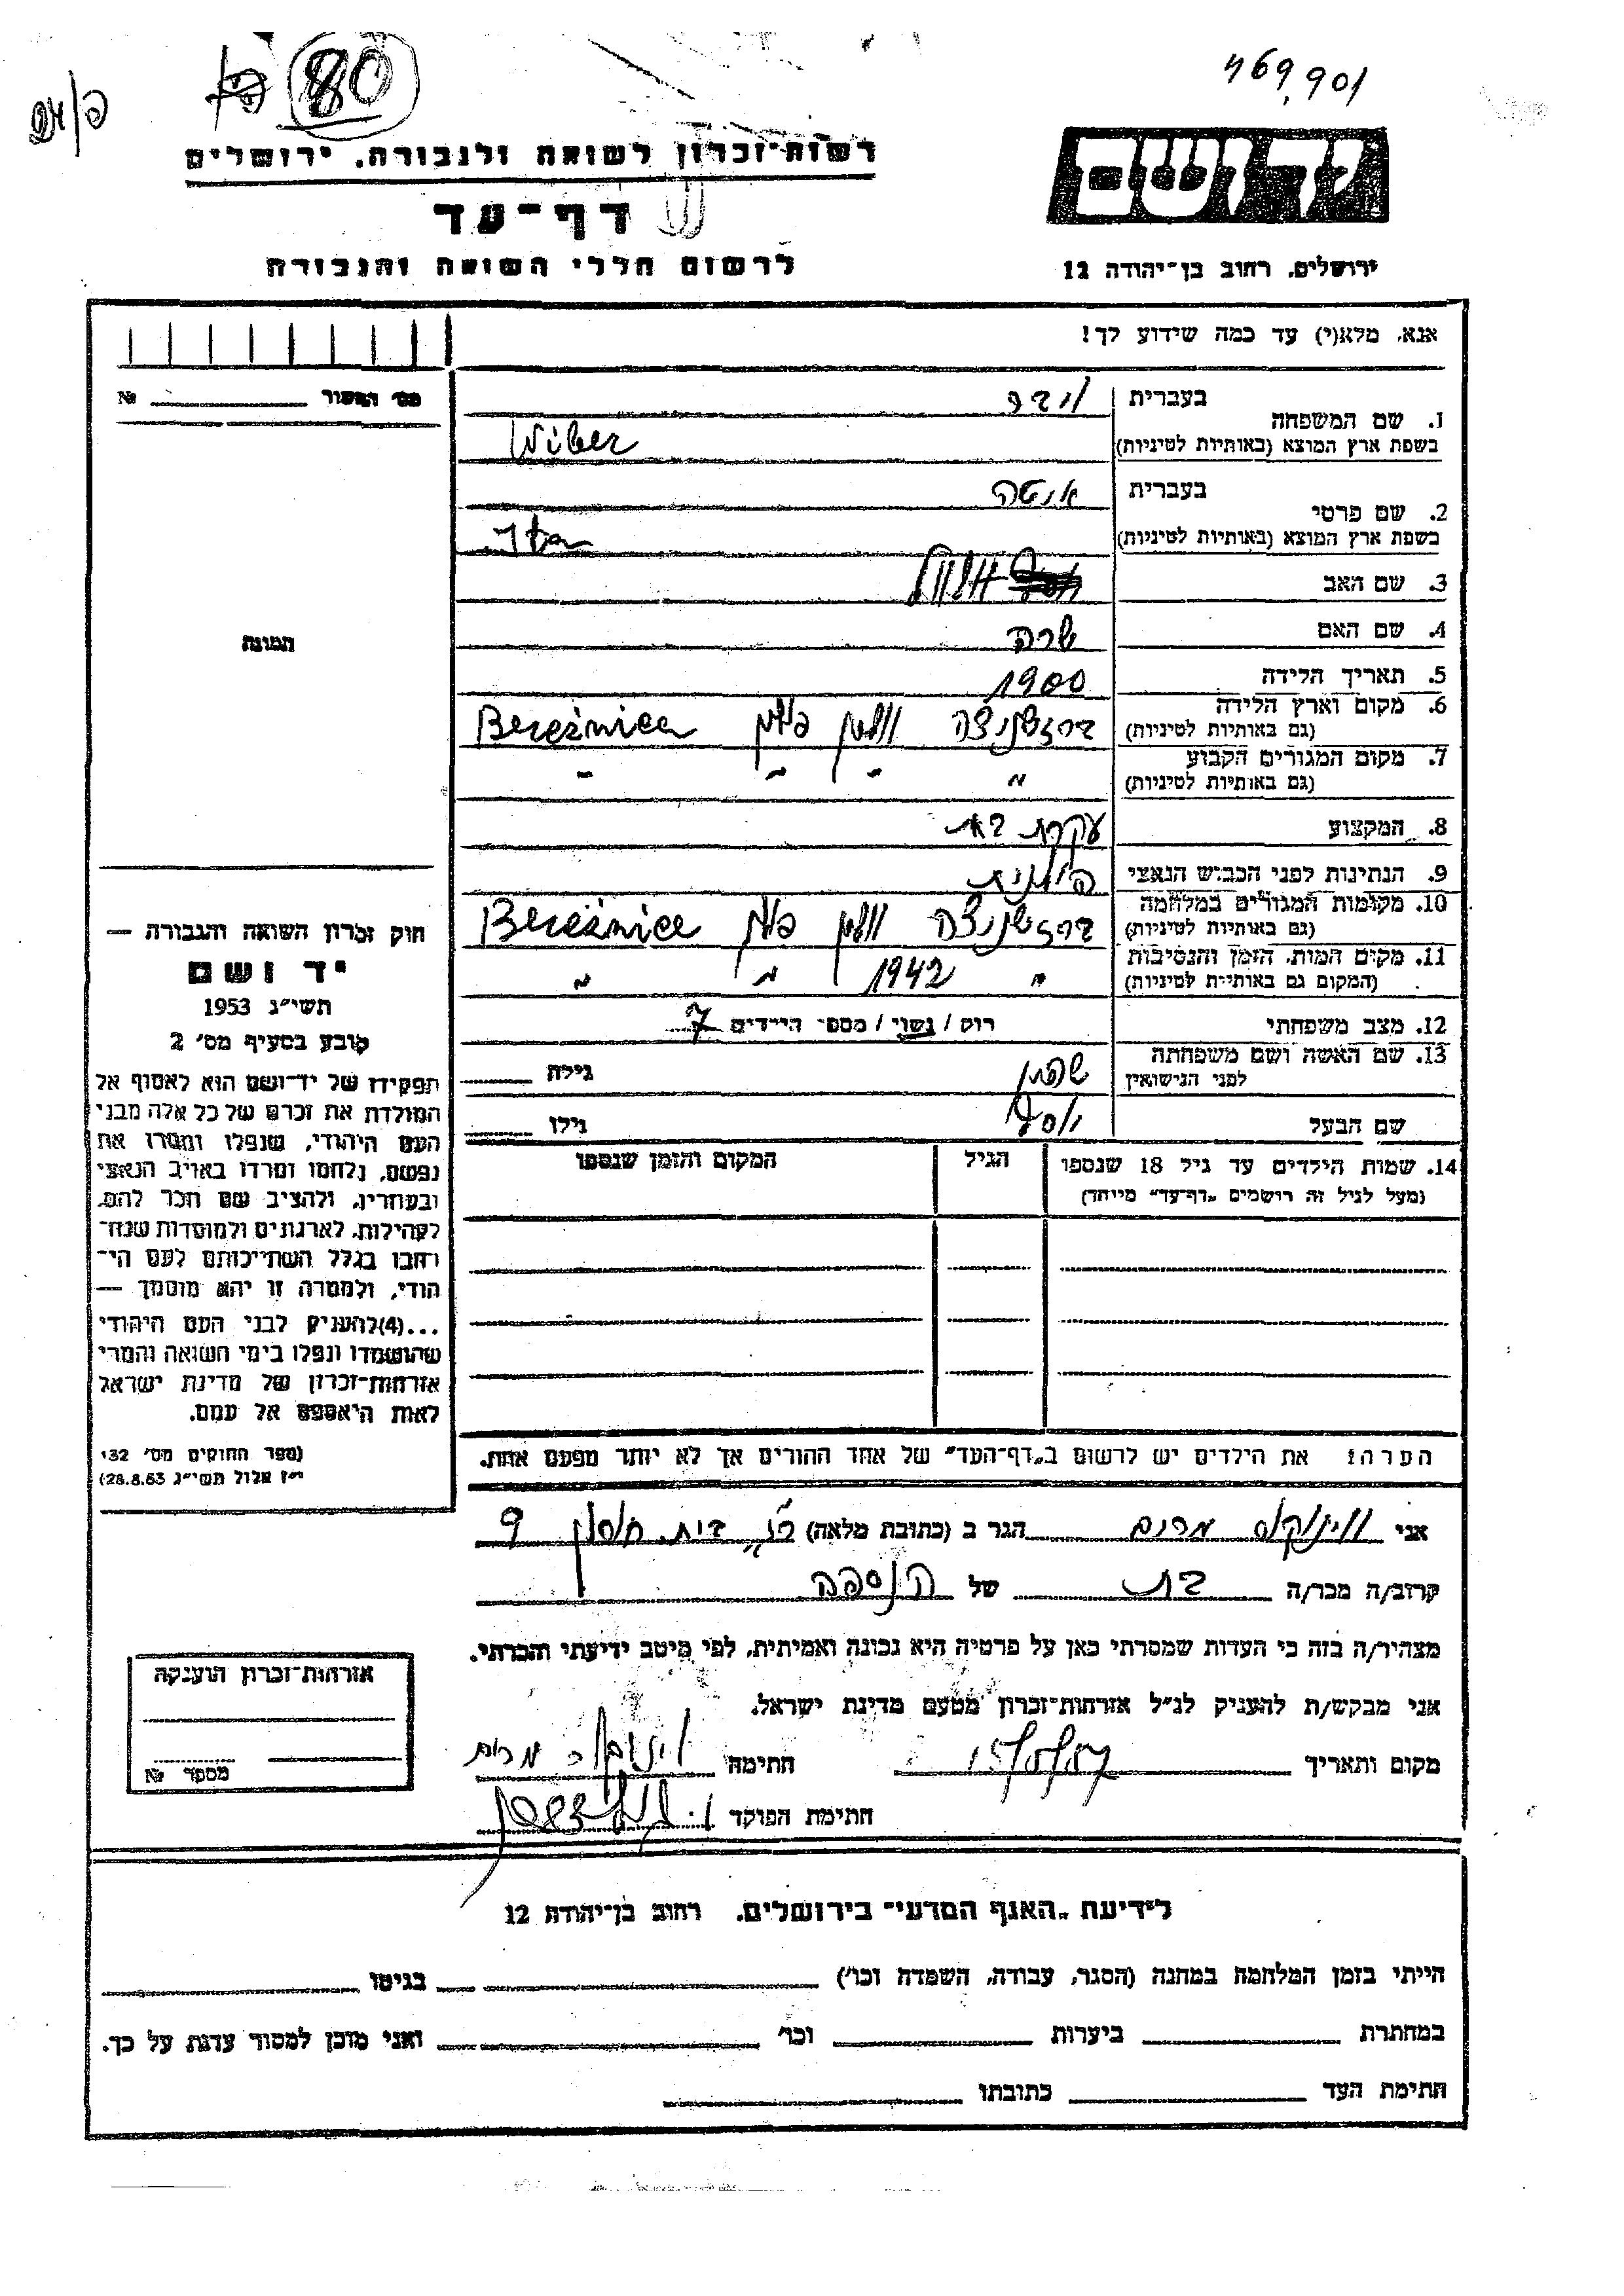 469,901
80
רשות-זכרון לשואה ולגבורה, ירושלים
דף-עד
לרשום חללי השואה והגבורה
יד ושם
ירושלים, רחוב בן-יהודה 12
אנא, מלא(י) עד כמה שידוע לך!
מס' האסור № 
1. שם המשפחה
בעברית
ויבר
בשפת ארץ המוצא (באותיות לטיניות)
Wiber
2. שם פרטי
בעברית
איטה
בשפת ארץ המוצא (באותיות לטיניות)
3. שם האב
4. שם האם שרה
5. תאריך הלידה 1900
6. מקום וארץ הלידה
(גם באותיות לטיניות)
ברזשניצה ווהלין פולין Bereżnica
7. מקום המגורים הקבוע
(גם באותיות לטיניות)
" " " "
8. המקצוע עקרת בית
9. הנתינות לפני הכבוש הנאצי פולנית
10. מקומות המגורים במלחמה
(גם באותיות לטיניות)
ברזשניצה ווהלין פולין Bereżnica
11. מקום המות, הזמן והנסיבות
(המקום גם באותיות לטיניות)
" 1942 " "
12. מצב משפחתי רווק / נשוי / מספר הילדים 7
13. שם האשה ושם משפחתה
לפני הנישואין
גילה
שם הבעל יוסף גילו
14. שמות הילדים עד גיל 18 שנספו
(מעל לגיל זה רושמים „דף-עד" מייחד)
הגיל
המקום והזמן שנספו
הערה: את הילדים יש לרשום ב„דף-העד" של אחד ההורים אך לא יותר מפעם אחת.
התמונה
חוק זכרון השואה והגבורה —
יד ושם
תשי"ג 1953
קובע בסעיף מס' 2
תפקידו של יד-ושם הוא לאסוף אל
המולדת את זכרם של כל אלה מבני
העם היהודי, שנפלו ומסרו את
נפשם, נלחמו ומרדו באויב הנאצי
ובעוזריו, ולהציב שם וזכר להם,
לקהילות, לארגונים ולמוסדות שנח-
רבו בגלל השתייכותם לעם הי-
הודי, ולמטרה זו יהא מוסמך —
...(4)להעניק לבני העם היהודי
שהושמדו ונפלו בימי השואה והמרי
אזרחות-זכרון של מדינת ישראל
לאות היאספם אל עמם.
(ספר החוקים מס' 132
י"ז אלול תשי"ג 28.8.53)
אני מרים הגר ב (כתובת מלאה) 9
קרוב/ה מכר/ה בת של הנספה
מצהיר/ה בזה כי העדות שמסרתי כאן על פרטיה היא נכונה ואמיתית, לפי מיטב ידיעתי והכרתי.
אני מבקש/ת להעניק לנ"ל אזרחות-זכרון מטעם מדינת ישראל.
מקום ותאריך חתימה
חתימת הפוקד
אזרחות-זכרון הוענקה
מספר №
לידיעת „האגף המדעי" בירושלים, רחוב בן-יהודה 12
הייתי בזמן המלחמה במחנה (הסגר, עבודה, השמדה וכו') בגיטו
במחתרת ביערות וכו' ואני מוכן למסור עדות על כך.
חתימת העד כתובתו